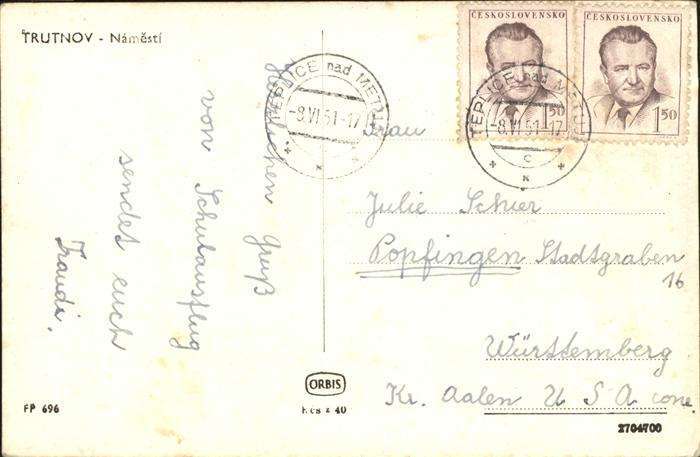 TRUTNOV - Náměstí
Herzlichen Gruß
von Schulausflug
sendet euch
Traudi.
ČESKOSLOVENSKO
1 50
ČESKOSLOVENSKO
1 50
TEPLICE nad METUJÍ
-8.VI.51-17
TEPLICE nad METUJÍ
-8.VI.51-17
C
Frau
Julie Schier
Popfingen Stadtgraben
16
Württemberg
Kr. Aalen U S A cone.
ORBIS
FP 696
h cs z 40
2704700